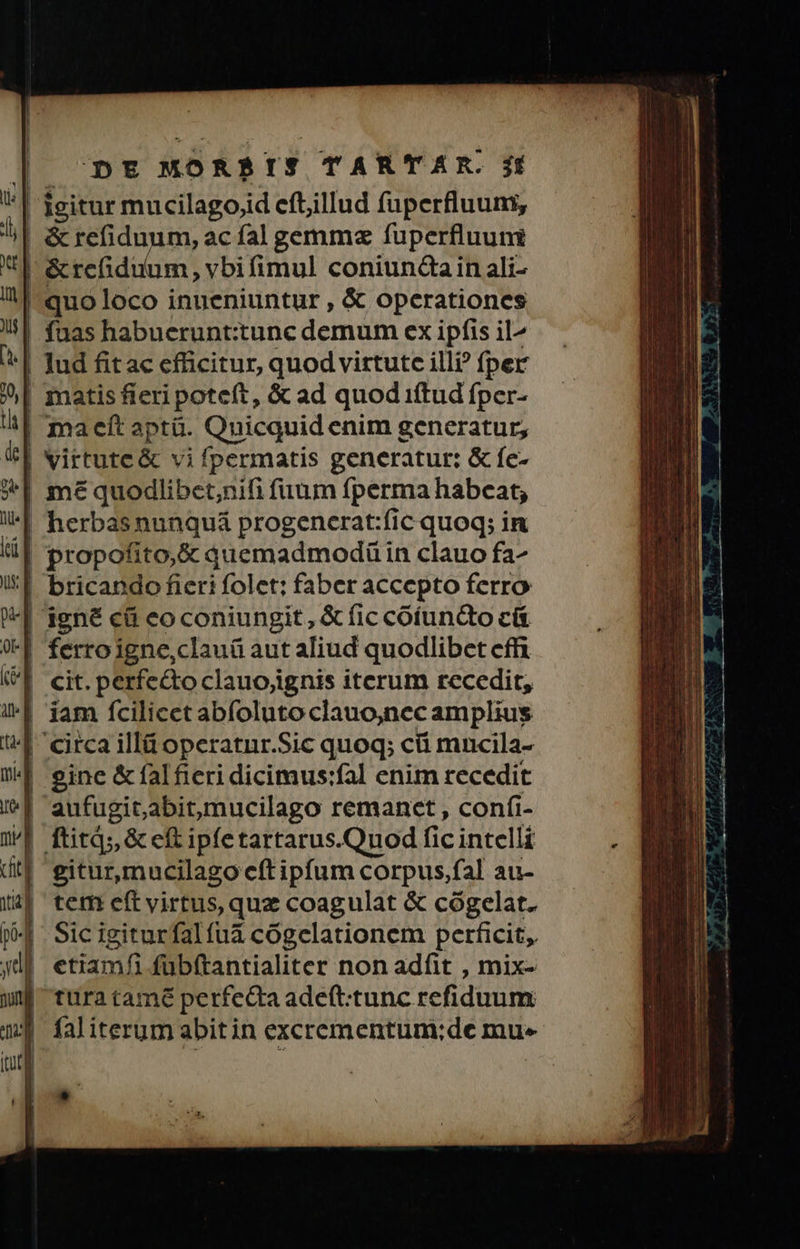 DE MORBIS TARTAR. 31
igitur mucilago,id eſt,illud ſuperfluum,
& reſiduum, ac ſal gemmæ ſuperfluum
& reſiduum, vbi ſimul coniuncta in ali-
quo loco inueniuntur, & operationes
ſuas habuerunt:tunc demum ex ipſis il-
lud fit ac efficitur, quod virtute illiꝰ ſper
matis fieri poteſt, & ad quod iſtud ſper-
ma eſt aptū. Quicquid enim generatur,
virtute & vi ſpermatis generatur: & ſe-
mē quodlibet,niſi ſuum ſperma habeat,
herbas nunquā progenerat:ſic quoq; in
propoſito,& quemadmodū in clauo fa-
bricando fieri ſolet: faber accepto ferro
ignē cū eo coniungit, & ſic cōiuncto cū
ferro igne,clauū aut aliud quodlibet effi
cit. perfecto clauo,ignis iterum recedit,
iam ſcilicet abſoluto clauo,nec amplius
circa illū operatur.Sic quoq; cū mucila-
gine & ſal fieri dicimus:ſal enim recedit
aufugit,abit,mucilago remanet, conſi-
ſtitq;, & eſt ipſe tartarus.Quod ſic intelli
gitur,mucilago eſt ipſum corpus,ſal au-
tem eſt virtus, quæ coagulat & cōgelat.
Sic igitur ſal ſuā cōgelationem perficit,
etiamſi ſubſtantialiter non adſit, mix-
tura tamē perfecta adeſt:tunc reſiduum
ſal iterum abit in excrementum:de mu-